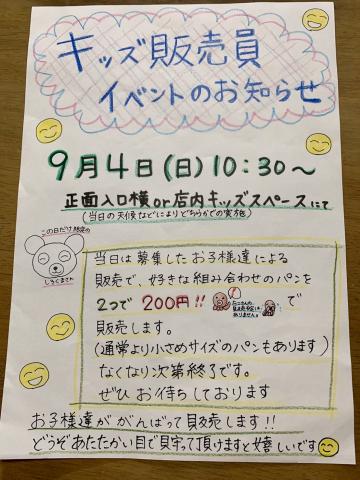 キッズ販売員
イベントのお知らせ
9月4日(日)10:30〜
正面入口横or店内キッズスペースにて
(当日の天候などによりどちらかでの実施)
この日だけ限定の
しろくまさん
当日は募集したお子様達による
販売で、好きな組み合わせのパンを
2つで 200円!! で
販売します。
(通常より小さめサイズのパンもあります)
なくなり次第終了です。
ぜひお待ちしております
お子様達ががんばって販売します!!
どうぞあたたかい目で見守って頂けますと嬉しいです